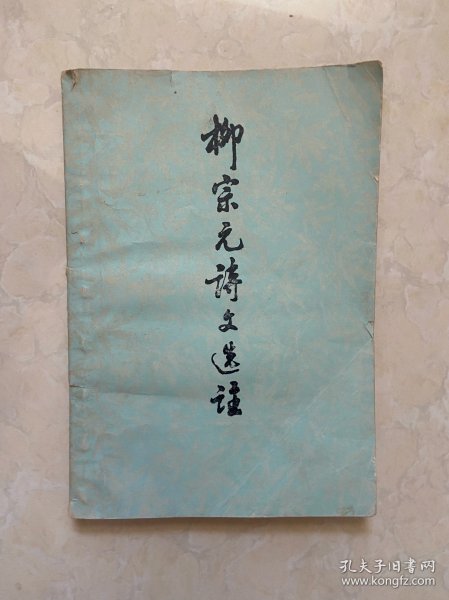 柳宗元詩文选註
孔夫子旧书网
www.kongfz.com